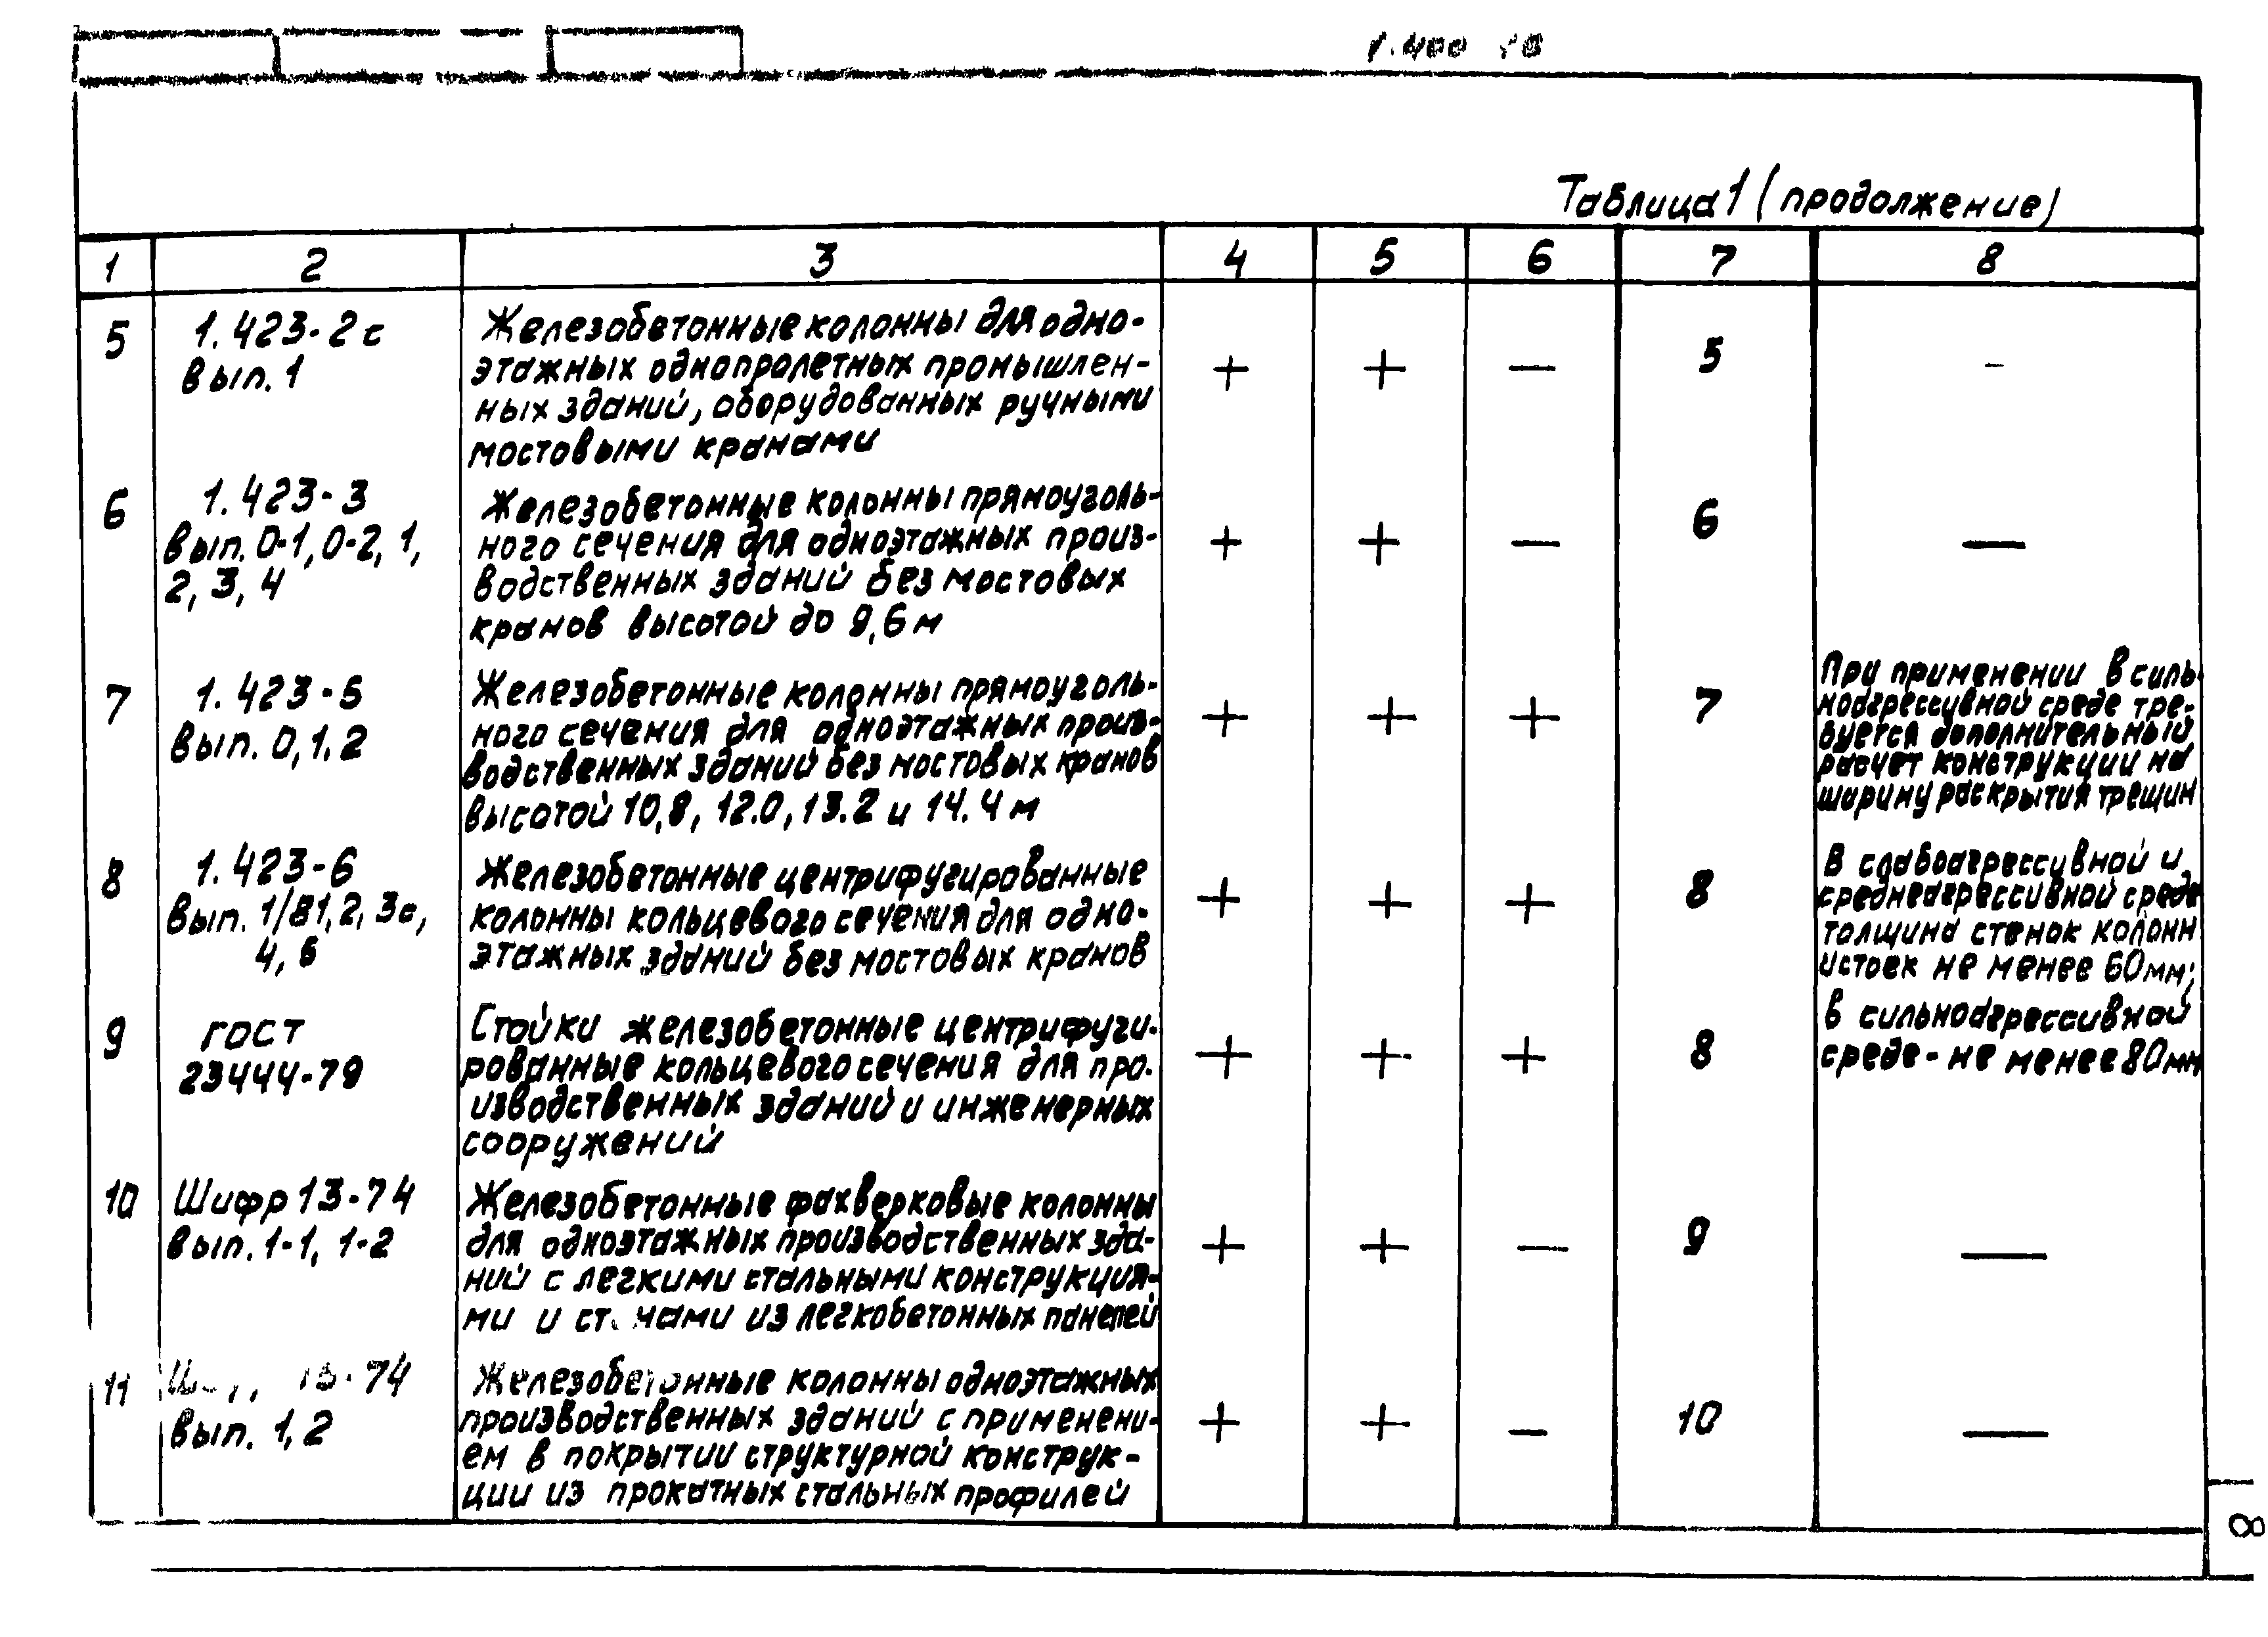 1.400
Таблица 1 (продолжение)
1 2 3 4 5 6 7 8
5 1.423-2с Железобетонные колонны для одно-
вып. 1 этажных однопролетных промышлен- + + — 5 -
ных зданий, оборудованных ручными
мостовыми кранами
6 1.423-3 Железобетонные колонны прямоуголь-
вып. 0-1, 0-2, 1, ного сечения для одноэтажных произ- + + — 6 —
2, 3, 4 водственных зданий без мостовых
кранов высотой до 9,6 м
7 1.423-5 Железобетонные колонны прямоуголь- + + + 7 При применении в силь-
вып. 0, 1, 2 ного сечения для одноэтажных произ- ноагрессивной среде тре-
водственных зданий без мостовых кранов буется дополнительный
высотой 10,8, 12.0, 13.2 и 14.4 м расчет конструкции на
ширину раскрытия трещин
8 1.423-6 Железобетонные центрифугированные + + + 8 В слабоагрессивной и
вып. 1/81, 2, 3с, колонны кольцевого сечения для одно- среднеагрессивной среде
4, 5 этажных зданий без мостовых кранов толщина стенок колонн
и стоек не менее 60 мм;
9 ГОСТ Стойки железобетонные центрифуги- в сильноагрессивной
23444-79 рованные кольцевого сечения для про- + + + 8 среде - не менее 80 мм
изводственных зданий и инженерных
сооружений
10 Шифр 13-74 Железобетонные фахверковые колонны
вып. 1-1, 1-2 для одноэтажных производственных зда- + + — 9 —
ний с легкими стальными конструкция-
ми и из легкобетонных панелей
11 13-74 Железобетонные колонны одноэтажных
вып. 1, 2 производственных зданий с применени- + + — 10 —
ем в покрытии структурной конструк-
ции из прокатных стальных профилей
8